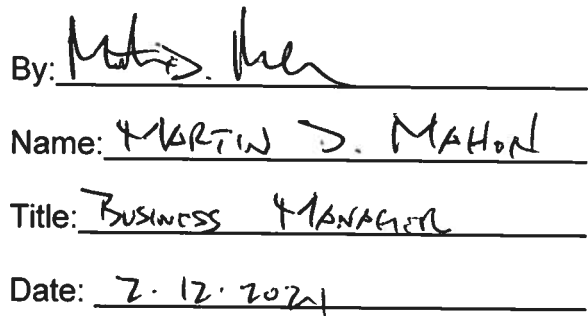 By:
Name: MARTIN J. MAHON
Title: BUSINESS MANAGER
Date: 2.12.2021